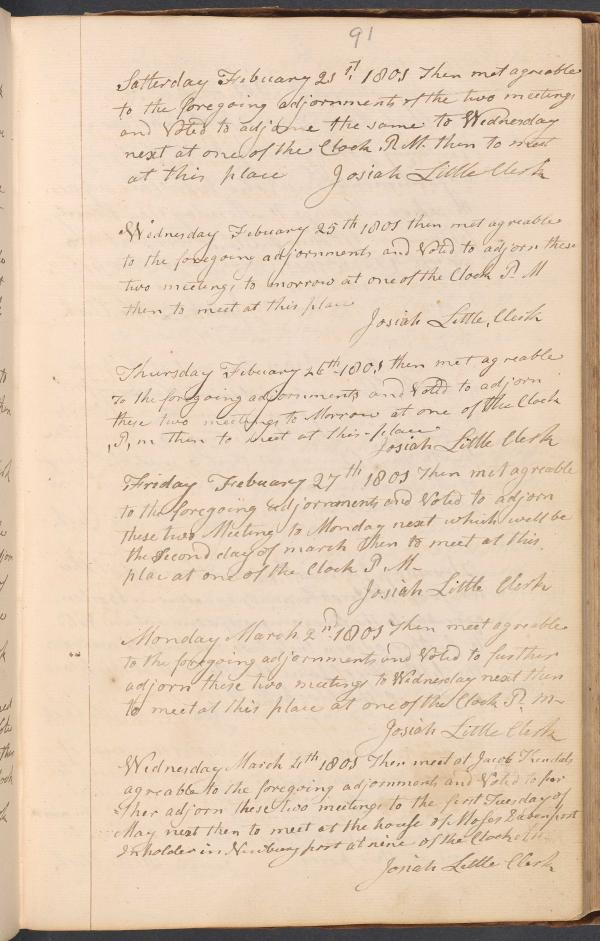 91
Satterday Febuary 21st 1801 then met agreable
to the foregoing adjornments of the two meetings
and Voted to adjorne the same to Wednesday
next at one of the Clock P. M. then to meet
at this place Josiah Little Clerk
Wednesday Febuary 25th 1801 then met agreable
to the foregoing adjornments and Voted to adjorn these
two meetings to morrow at one of the Clock P. M
then to meet at this place
Josiah Little, Clerk
Thursday Febuary 26th 1801 then met agreable
to the foregoing adjornments and Voted to adjorn
these two meetings to Morrow at one of the Clock
P, m then to meet at this place
Josiah Little Clerk
Friday Febuary 27th 1801 then met agreable
to the foregoing adjornments and Voted to adjorn
these two Meeting to Monday next which will be
the Second day of march then to meet at this
plac at one of the Clock P. M
Josiah Little Clerk
Monday March 2nd 1801 then meet agreable
to the foregoing adjornments and Voted to further
adjorn these two meetings to Wednesday next then
to meet at this place at one of the Clock P. M
Josiah Little Clerk
Wednesday March 4th 1801 then meet at Jacob
agreable to the foregoing adjornments and Voted to fur
ther adjorn these two meetings to the first Tuesday of
May next then to meet at the house of Moses Davenport
Inholder in Newburyport at nine of the Clock
Josiah Little Clerk